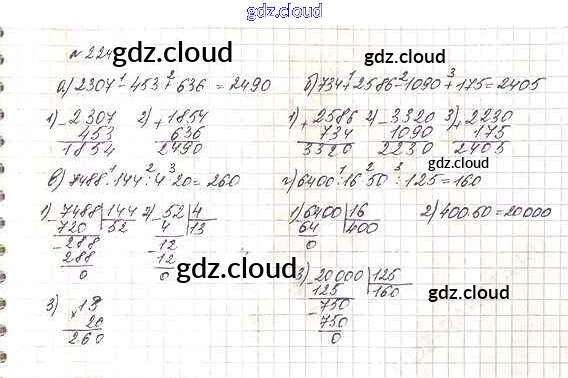 gdz.cloud
№ 224
gdz.cloud
gdz.cloud
а) 2307 - 453 + 636 = 2490
б) 734 + 2586 - 1090 + 175 = 2405
1) - 2307
453
1854
2) + 1854
636
2490
1) + 2586
734
3320
2) - 3320
1090
2230
3) + 2230
175
2405
gdz.cloud
в) 7488 : 144 : 4 · 20 = 260
г) 6400 : 16 · 50 : 125 = 160
1) 7488 | 144
720 | 52
- 288
288
0
2) 52 | 4
4 | 13
- 12
12
0
1) 6400 | 16
64 | 400
0
2) 400 · 50 = 20000
gdz.cloud
gdz.cloud
3) 13
× 20
260
3) 20000 | 125
125 | 160
- 750
750
0
gdz.cloud